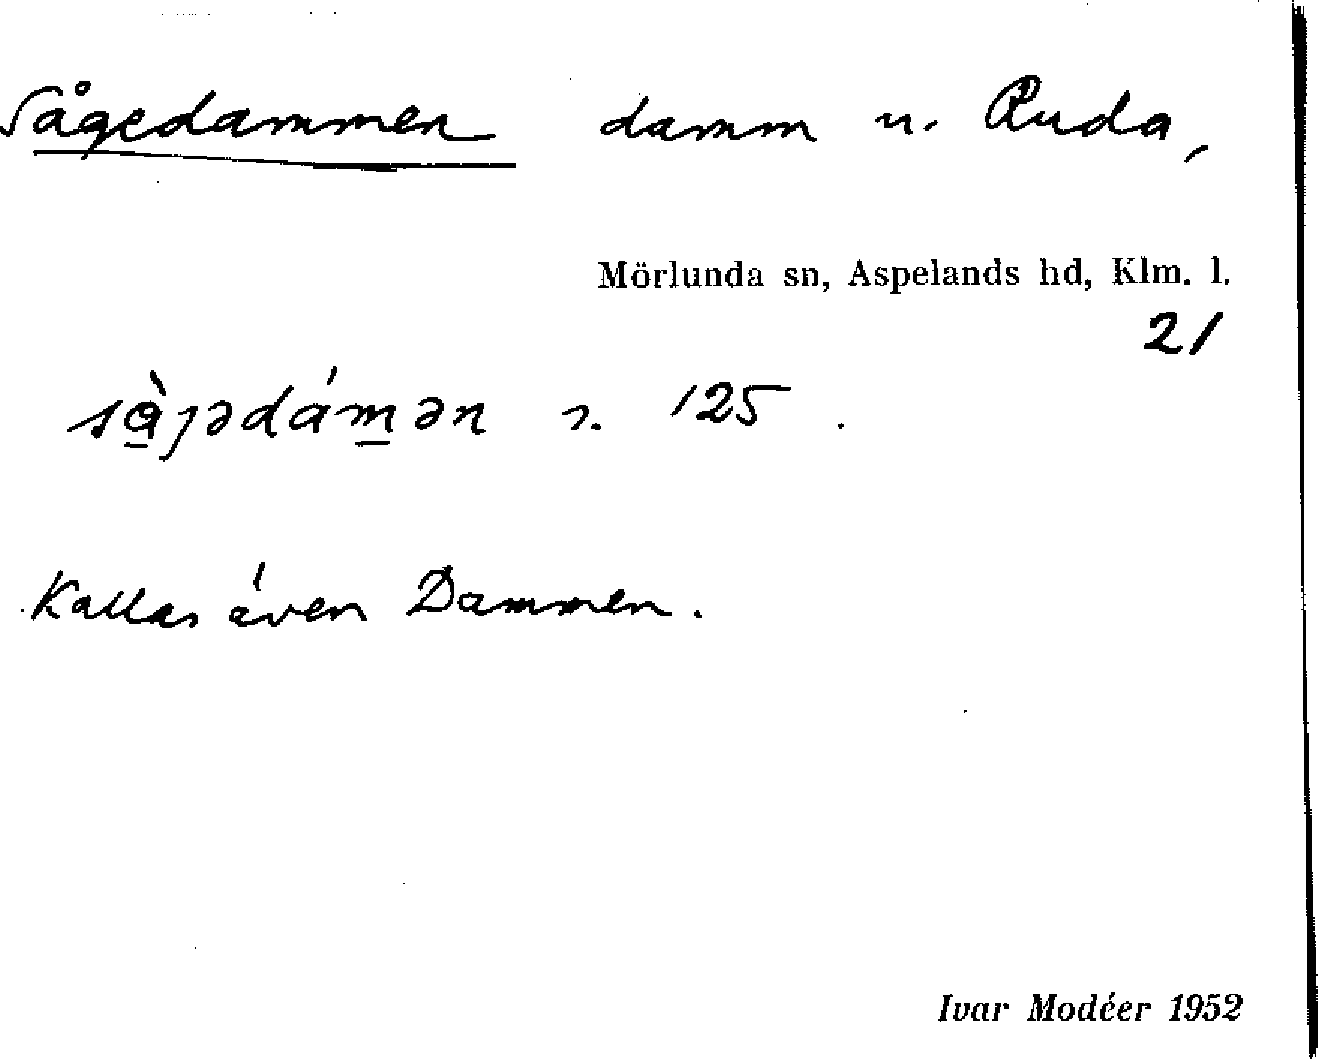 Sågedammen damm u. Ruda,
Mörlunda sn, Aspelands hd, Klm. l.
21
125.
Kallas även Dammen.
Ivar Modéer 1952